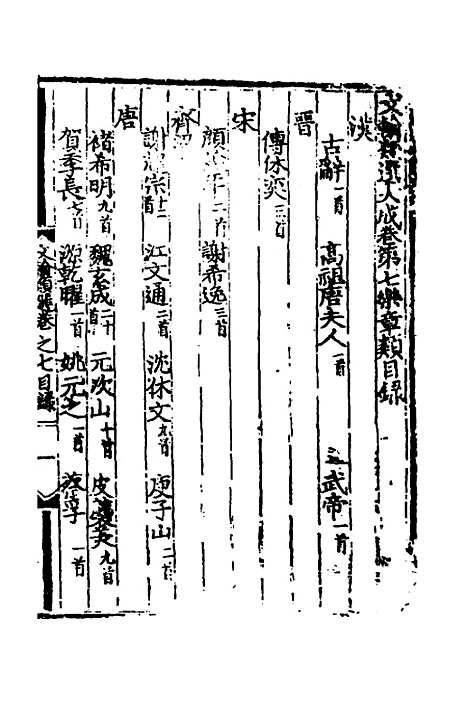 文翰類選大成卷第七樂章類目錄
漢
古辭一首 高祖唐夫人一首 武帝一首
晉
傅休奕三首
宋
顏 二首 謝希逸三首
齊
謝 宗十二首 江文通二首 沈休文九首 庾子山二首
唐
褚希明九首 魏玄成二十首 元次山十首 皮襲美九首
賀季長七首 源乾曜一首 姚元之一首 一首
文翰類選卷之七目錄 一